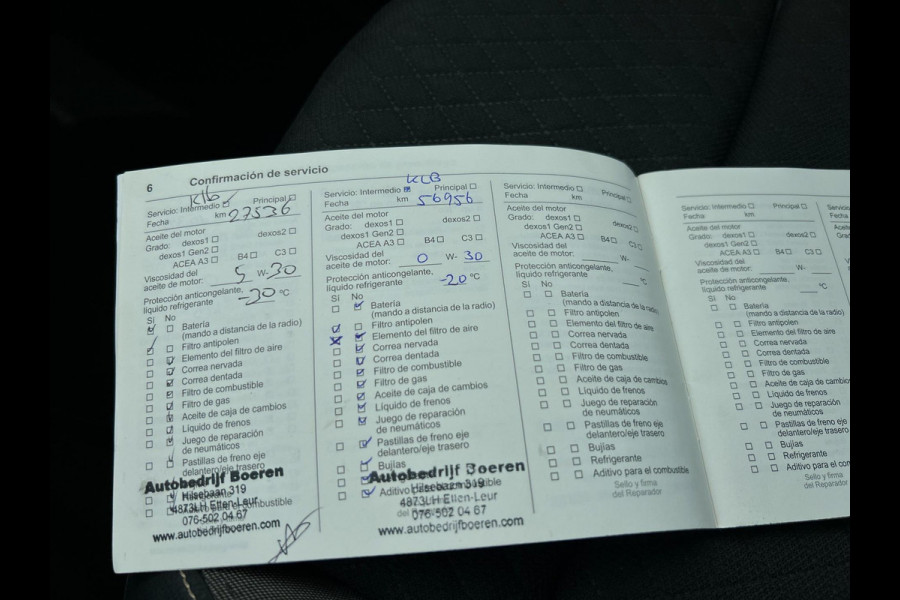 6 Confirmación de servicio
Klb
Servicio: Intermedio Principal
Fecha km 27536
Aceite del motor
Grado: dexos1 dexos2
dexos1 Gen2
ACEA A3 B4 C3
Viscosidad del
aceite de motor: 5 W-30
Protección anticongelante,
líquido refrigerante -30 °C
Sí No
Batería
(mando a distancia de la radio)
Filtro antipolen
Elemento del filtro de aire
Correa nervada
Correa dentada
Filtro de combustible
Filtro de gas
Aceite de caja de cambios
Líquido de frenos
Juego de reparación
de neumáticos
Pastillas de freno eje
delantero/eje trasero
Autobedrijf Boeren
Hilsebaan 319
4873LH Etten-Leur
076-502 04 67
www.autobedrijfboeren.com
KLB
Servicio: Intermedio Principal
Fecha km 56956
Aceite del motor
Grado: dexos1 dexos2
dexos1 Gen2
ACEA A3 B4 C3
Viscosidad del
aceite de motor: 0 W-30
Protección anticongelante,
líquido refrigerante -20 °C
Sí No
Batería
(mando a distancia de la radio)
Filtro antipolen
Elemento del filtro de aire
Correa nervada
Correa dentada
Filtro de combustible
Filtro de gas
Aceite de caja de cambios
Líquido de frenos
Juego de reparación
de neumáticos
Pastillas de freno eje
delantero/eje trasero
Bujías
Autobedrijf Boeren
Hilsebaan 319
Aditivo
4873LH Etten-Leur
076-502 04 67
www.autobedrijfboeren.com
Servicio: Intermedio Principal
Fecha km
Aceite del motor
Grado: dexos1 dexos2
dexos1 Gen2
ACEA A3 B4 C3
Viscosidad del
aceite de motor: W-
Protección anticongelante,
líquido refrigerante °C
Sí No
Batería
(mando a distancia de la radio)
Filtro antipolen
Elemento del filtro de aire
Correa nervada
Correa dentada
Filtro de combustible
Filtro de gas
Aceite de caja de cambios
Líquido de frenos
Juego de reparación
de neumáticos
Pastillas de freno eje
delantero/eje trasero
Bujías
Refrigerante
Aditivo para el combustible
Sello y firma
del Reparador
Servicio: Intermedio Principal
Fecha km
Aceite del motor
Grado: dexos1 dexos2
dexos1 Gen2
ACEA A3 B4 C3
Viscosidad del
aceite de motor: W-
Protección anticongelante,
líquido refrigerante °C
Sí No
Batería
(mando a distancia de la radio)
Filtro antipolen
Elemento del filtro de aire
Correa nervada
Correa dentada
Filtro de combustible
Filtro de gas
Aceite de caja de cambios
Líquido de frenos
Juego de reparación
de neumáticos
Pastillas de freno eje
delantero/eje trasero
Bujías
Refrigerante
Aditivo para el com
Sello y firma
del Reparador